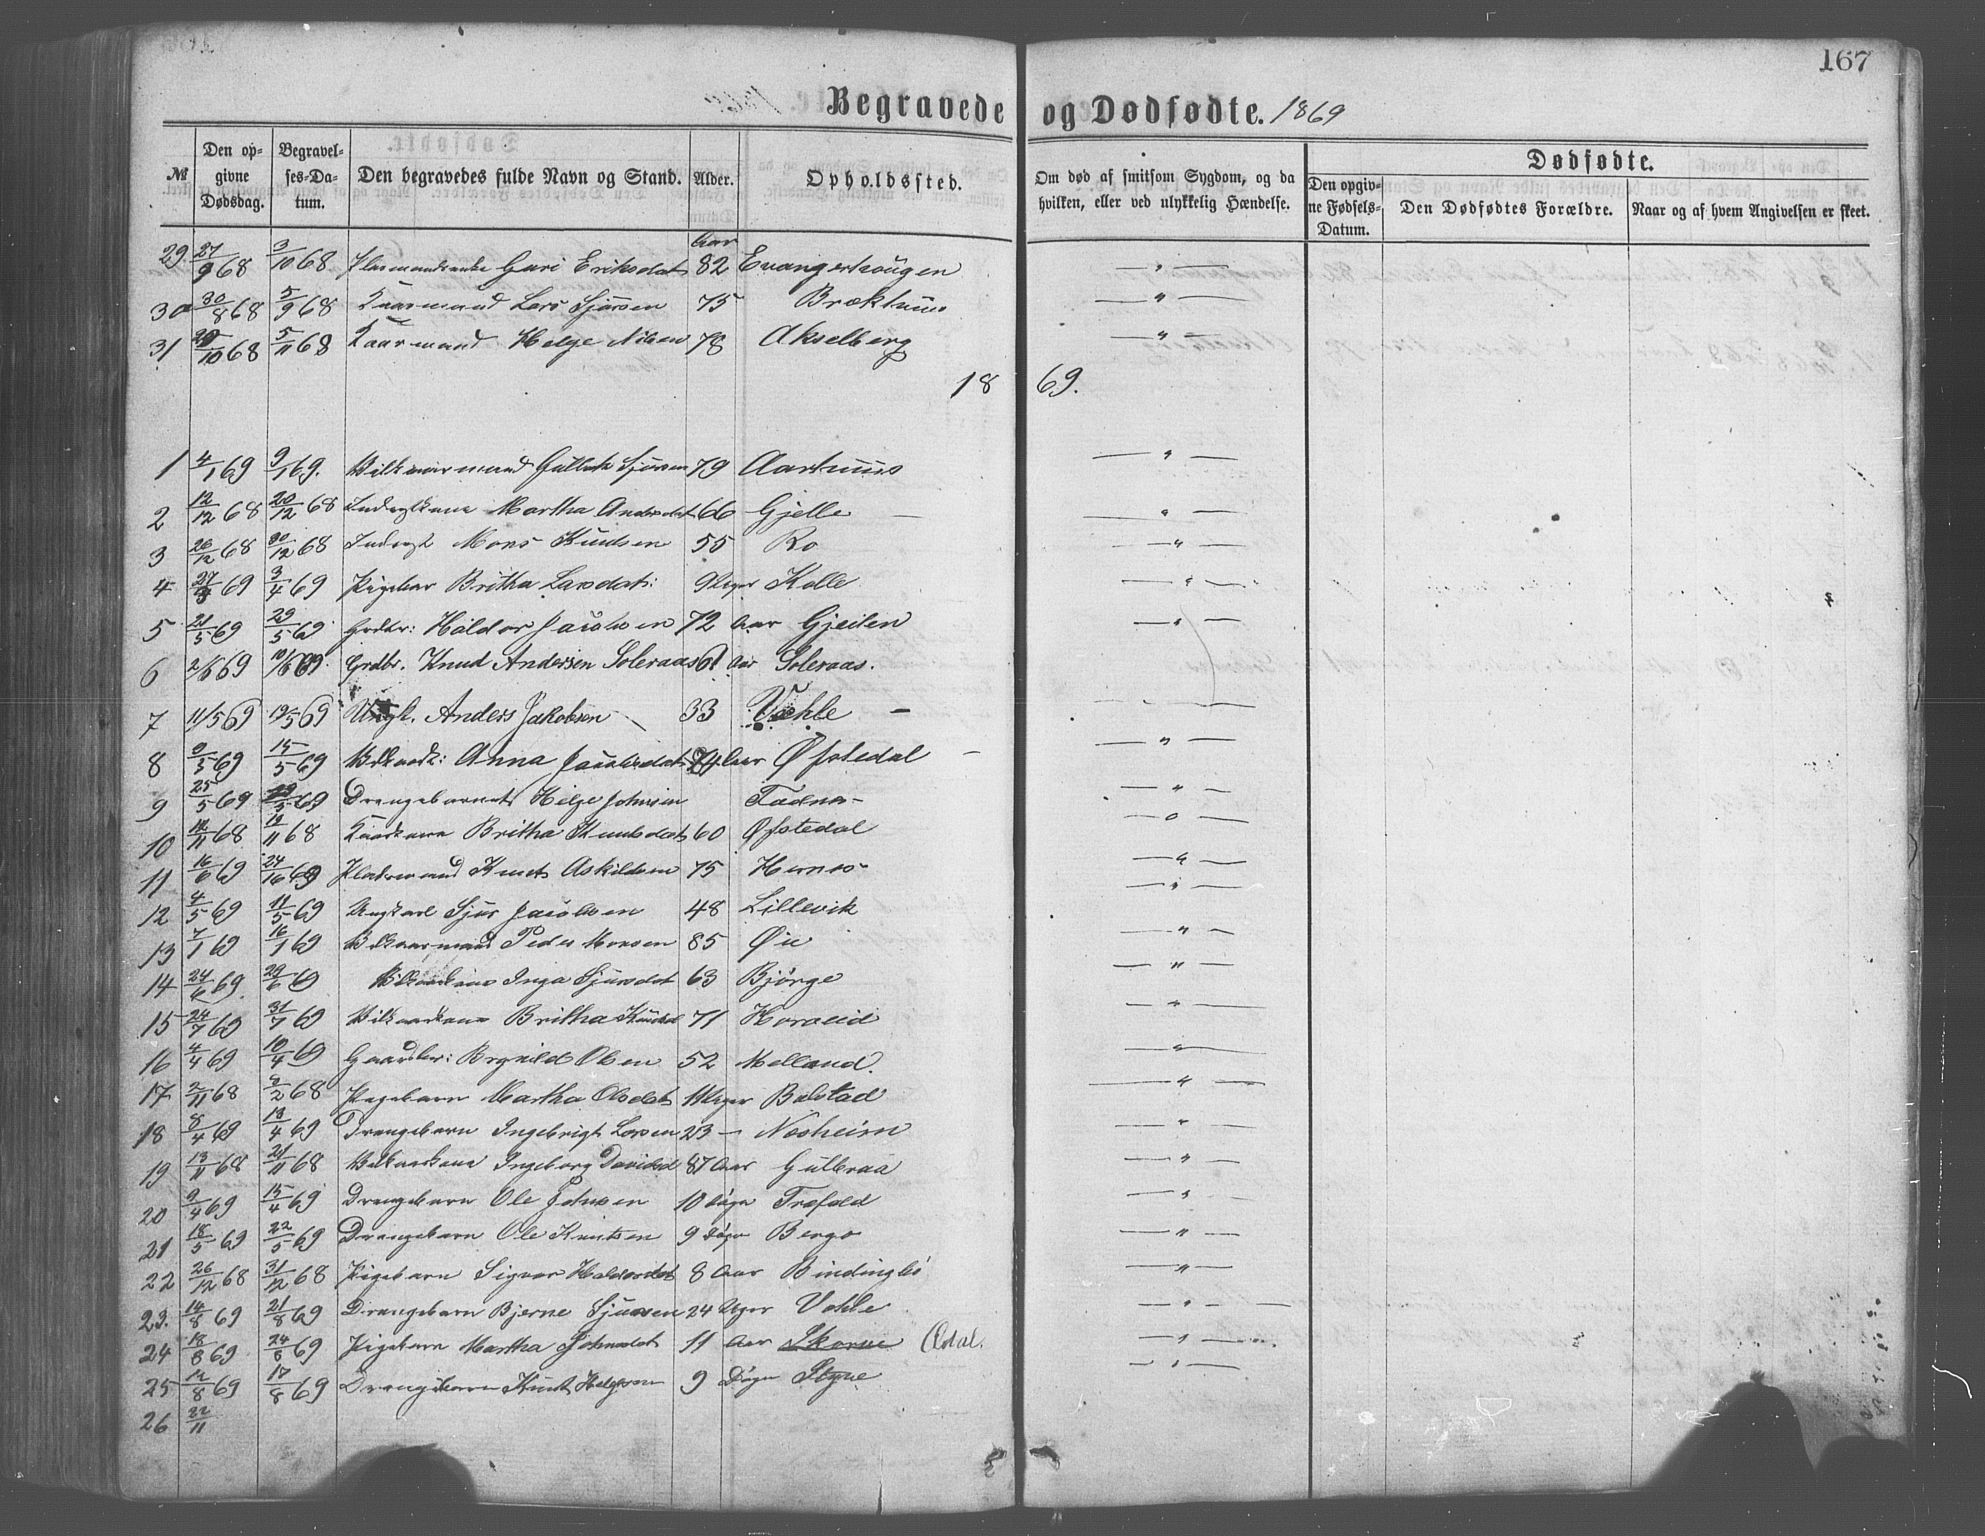 167
Begravede og Dødfødte. 1869
№ Den opgivne Dødsdag. Begravelses-Datum. Den begravedes fulde Navn og Stand. Alder. Opholdssted. Om død af smitsom Sygdom, og da hvilken, eller ved ulykkelig Hændelse. Dødfødte. Den opgivne Fødsels-Datum. Den Dødfødtes Forældre. Naar og af hvem Angivelsen er skeet.
Aar
29. 27/9 68 3/10 68 Guri Eriksdat 82 Evangerhougen — " —
30 30/8 68 5/9 68 Kaarmand Lars Sjursen 75 Brækhuus — " —
31 /10 68 5/11 68 Kaarmand Helge Nilsen 78 Akselberg — " —
18 69.
1 4/1 69 9/1 69. Sjursen 79 Aarhuus — " —
2 12/12 68 20/12 68 Martha Andersdat 66 Gjelle — " —
3 26/12 68 30/12 68 Inderst Mons Knudsen 55 Ro — " —
4 69 3/4 69 Pigebar Britha Larsdat: 9 Uger Kolle — " —
5 21/5 69 29/5 69 Grdbr: Haldor Jacobsen 72 Aar Gjeilen — " —
6 2/6 69 10/6 69. Grdbr. Knud Andersen Soleraas 61 Aar Soleraas.
7 11/5 69 19/5 69 Ungk. Anders Jakobsen 33 Væhle — — " —
8 9/5 69 15/5 69 Anna Jacobsdat 74 Aar Øfstedal — — " —
9 25/5 69 69 Drengebarnet Helge Johnsen — " —
10 12/11 68 19/11 68 Britha Knutsdat 60 Øfstedal — " —
11 16/6 69 24/ 69 Pladsmand Knut Askildsen 75 Hernes — " —
12 4/5 69 11/5 69 Ungkarl Sjur Jacobsen 48 Lillevik — " —
13 7/1 69 16/1 69 Peder Monsen 85 — " —
14 24/6 69. 29/6 69 Inga Sjursdat 63 Bjørge — " —
15 24/7 69 31/7 69 Britha Knudsd 71 Horveid — " —
16 4/4 69 10/4 69 Gaardbr: Brynild Olsen 52 Melland. — " —
17 2/11 68 68 Pigebarn Martha Olsdat 11 Uger Bolstad — " —
18 8/4 69 13/4 69 Drengebarn Ingebrigt Larsen 23 — Nesheim — " —
19 13/11 68 21/11 68 Ingeborg Davidsd 87 Aar Gulbraa — " —
20 9/4 69 15/4 69 Drengebarn Ole Johnsen 10 Dage Trefald — " —
21 18/5 69 22/5 69 Drengebarn Ole Knutsen 9 Dage Bergo — " —
22 26/12 68 31/12 68 Pigebarn Sigvor Haldorsdat 8 Aar Bindingbø — " —
23. 14/8 69 21/8 69 Drengebarn Bjerne Sjursen 24 Uger Vehle — " —
24 18/8 69 24/8 69 Pigebarn Martha Johnsdat 11 Aar Skorve Øedal. — " —
25 12/8 69 17/8 69 Drengebarn Knut Helgesen 9 Dage Styve — " —
26 22/11